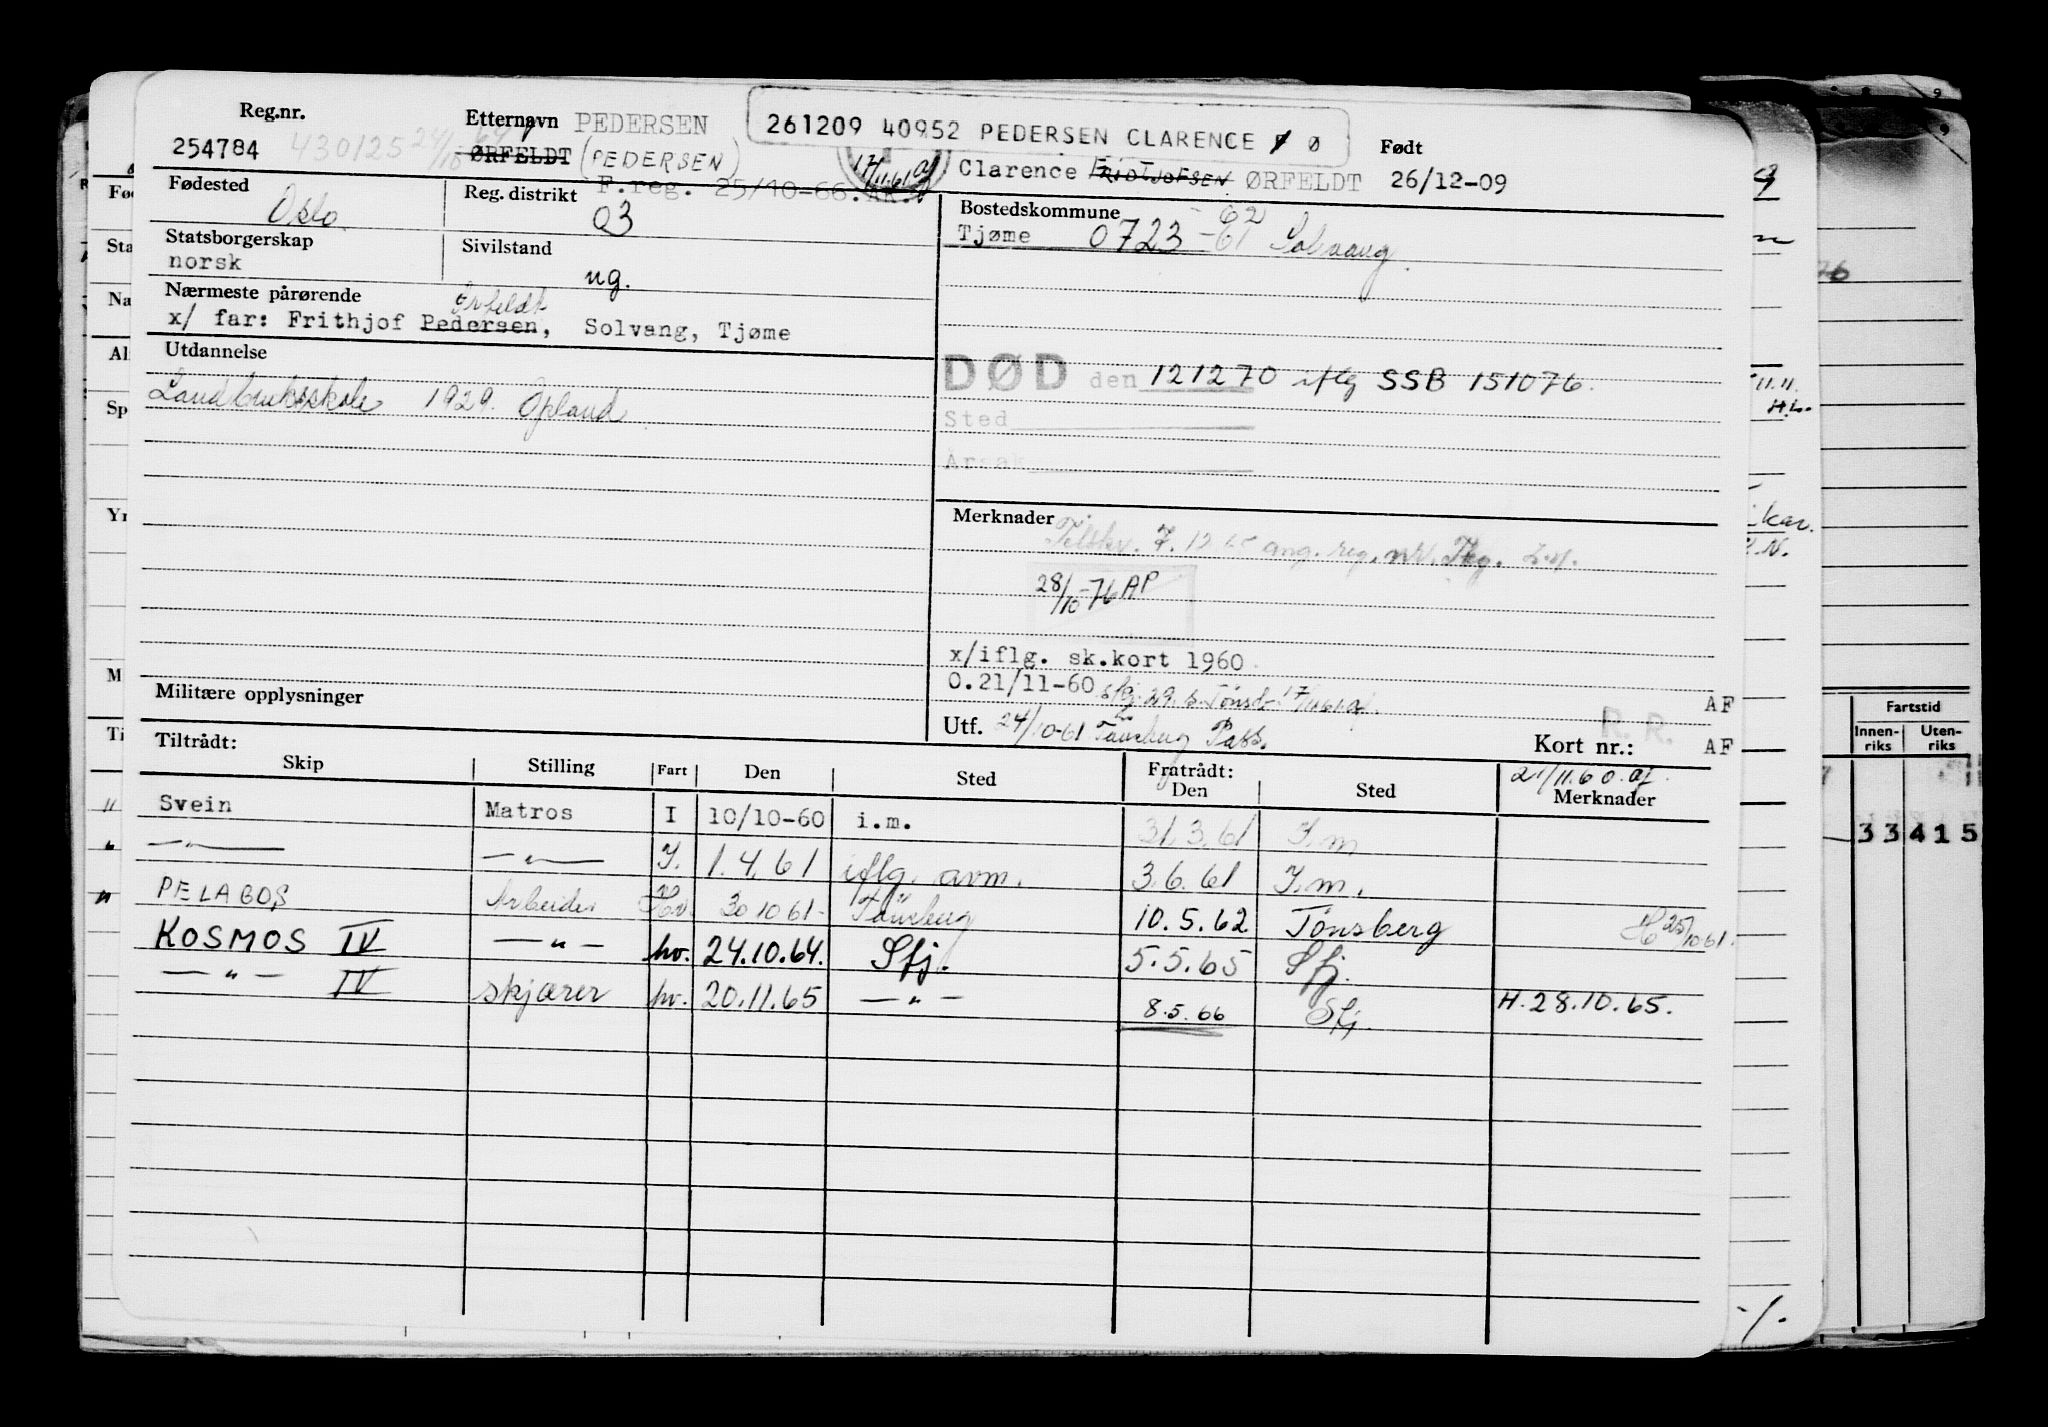 Reg.nr.
254784
430125 24/10 64
Etternavn PEDERSEN
ØRFELDT (PEDERSEN)
261209 40952 PEDERSEN CLARENCE F Ø
17/11.61 af
Clarence FRIDTJOFSEN ØRFELDT
Født
26/12-09
F.reg. 25/10-66. AK.
Fødested
Oslo
Reg. distrikt
03
Statsborgerskap
norsk
Sivilstand
ug.
Nærmeste pårørende
Ørfeldt
x/ far: Frithjof Pedersen, Solvang, Tjøme
Bostedskommune
Tjøme 0723 -62
-61 Solvang
Utdannelse
Landbruksskole 1929. Opland
DØD den 121270 iflg SSB 151076.
Sted
Årsak
Merknader
Tilskr. 7.12 65 ang. reg. nr.
28/10-76 AP
x/iflg. sk.kort 1960
O.21/11-60
AF
Utf. 24/10-61 Tønsberg Pass.
R. R.
Kort nr.: AF
Militære opplysninger
Tiltrådt:
Skip Stilling Fart Den Sted Fratrådt: Den Sted Merknader
21/11.60.af.
Svein Matros I 10/10-60 i.m. 31.3.61 I.m
—"— —"— I. 1.4.61 iflg. avm. 3.6.61 I.m.
PELAGOS Arbeider Hv. 30 10 61- Tønsberg 10.5.62 Tønsberg H 25/10 61.
KOSMOS IV —"— hv. 24.10.64. Sfj. 5.5.65 Sfj.
—"— IV skjærer hv. 20.11.65 —"— 8.5.66 Sfj. H.28.10.65.
Fartstid
Innen-riks Uten-riks
33415